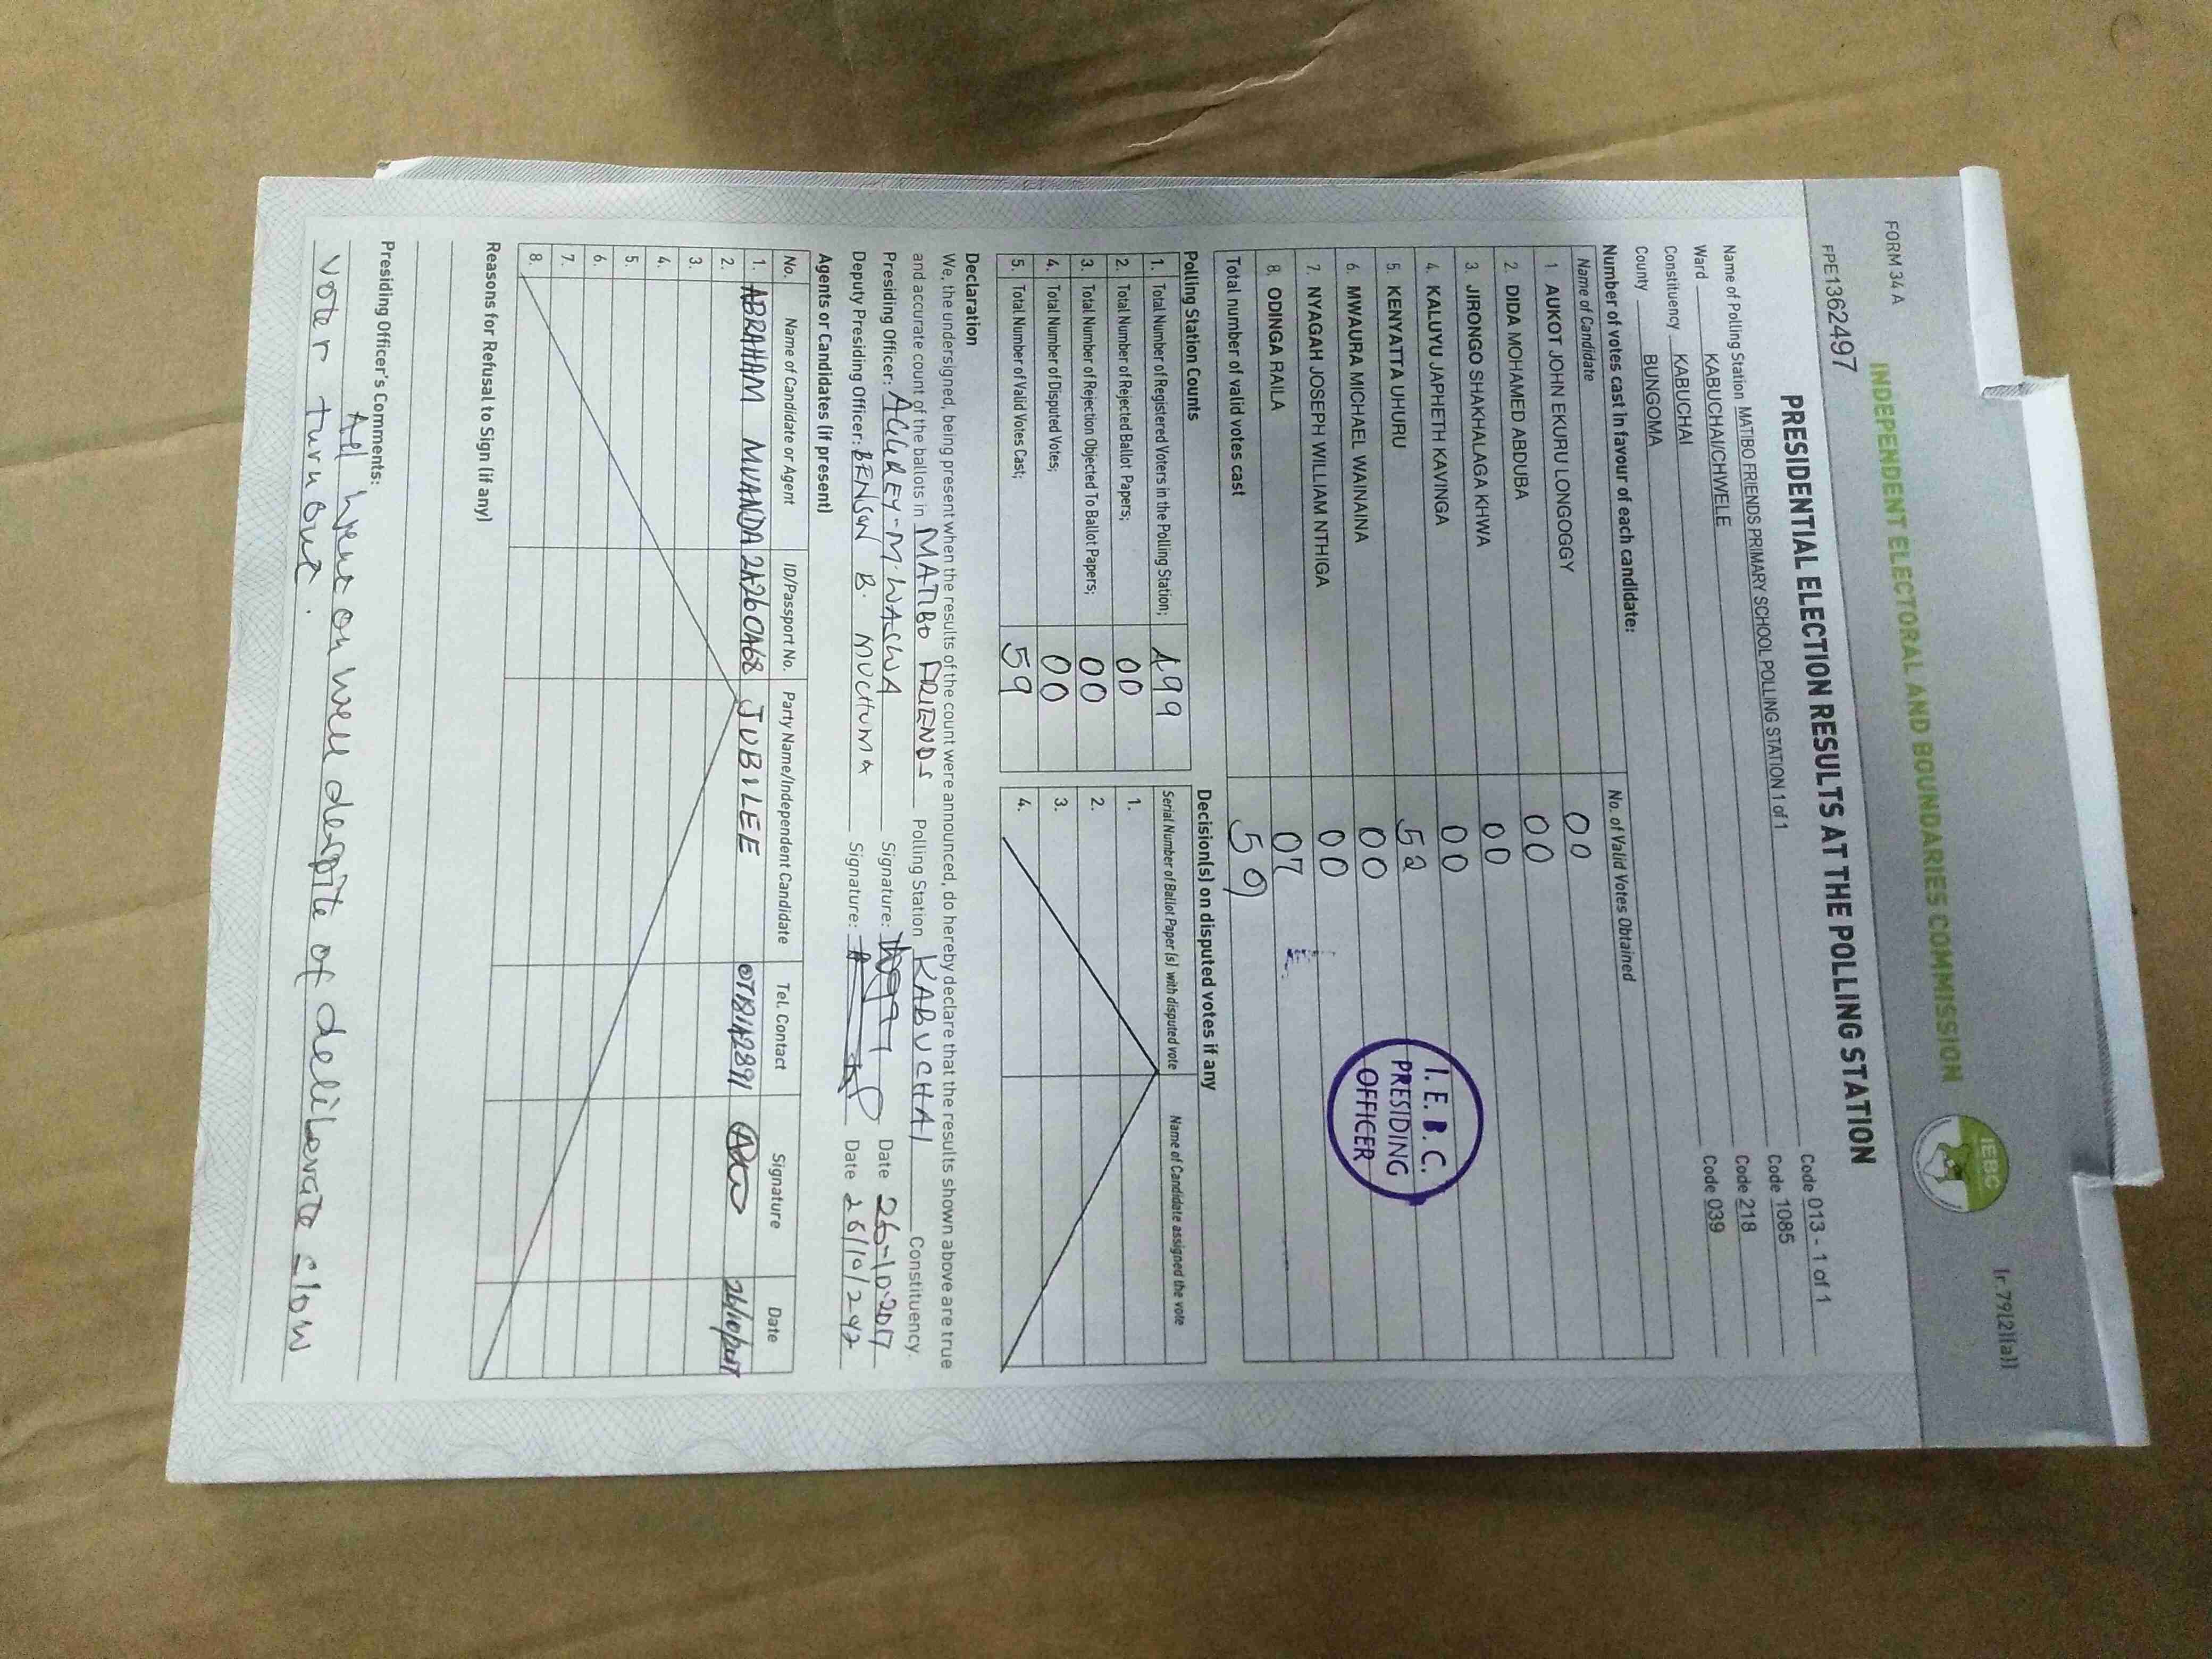 FORM 34 A
[r.79(2)(a)]
INDEPENDENT ELECTORAL AND BOUNDARIES COMMISSION
IEBC
FPE1362497
PRESIDENTIAL ELECTION RESULTS AT THE POLLING STATION
Name of Polling Station MATIBO FRIENDS PRIMARY SCHOOL POLLING STATION 1 of 1 Code 013 - 1 of 1
Ward KABUCHAI/CHWELE Code 1085
Constituency KABUCHAI Code 218
County BUNGOMA Code 039
Number of votes cast in favour of each candidate:
Name of Candidate No. of Valid Votes Obtained
1. AUKOT JOHN EKURU LONGOGGY 00
2. DIDA MOHAMED ABDUBA 00
3. JIRONGO SHAKHALAGA KHWA 00
4. KALUYU JAPHETH KAVINGA 00
5. KENYATTA UHURU 52
6. MWAURA MICHAEL WAINAINA 00
7. NYAGAH JOSEPH WILLIAM NTHIGA 00
8. ODINGA RAILA 07
Total number of valid votes cast 59
I.E.B.C.
PRESIDING
OFFICER
Polling Station Counts
1. Total Number of Registered Voters in the Polling Station; 199
2. Total Number of Rejected Ballot Papers; 00
3. Total Number of Rejection Objected To Ballot Papers; 00
4. Total Number of Disputed Votes; 00
5. Total Number of Valid Votes Cast; 59
Decision(s) on disputed votes if any
Serial Number of Ballot Paper (s) with disputed vote Name of Candidate assigned the vote
1.
2.
3.
4.
Declaration
We, the undersigned, being present when the results of the count were announced, do hereby declare that the results shown above are true
and accurate count of the ballots in MATIBO FRIENDS Polling Station KABUCHAI Constituency.
Presiding Officer: AGGREY-M-WASWA Signature: Date 26-10-2017
Deputy Presiding Officer: BENSON B. MUCHUMA Signature: Date 26/10/
Agents or Candidates (if present)
No. Name of Candidate or Agent ID/Passport No. Party Name/Independent Candidate Tel. Contact Signature Date
1. ABRAHAM MWANDA JUBILEE 26/10/2017
2.
3.
4.
5.
6.
7.
8.
Reasons for Refusal to Sign (if any)
Presiding Officer's Comments:
All went on well despite of deliberate slow
voter turn out.